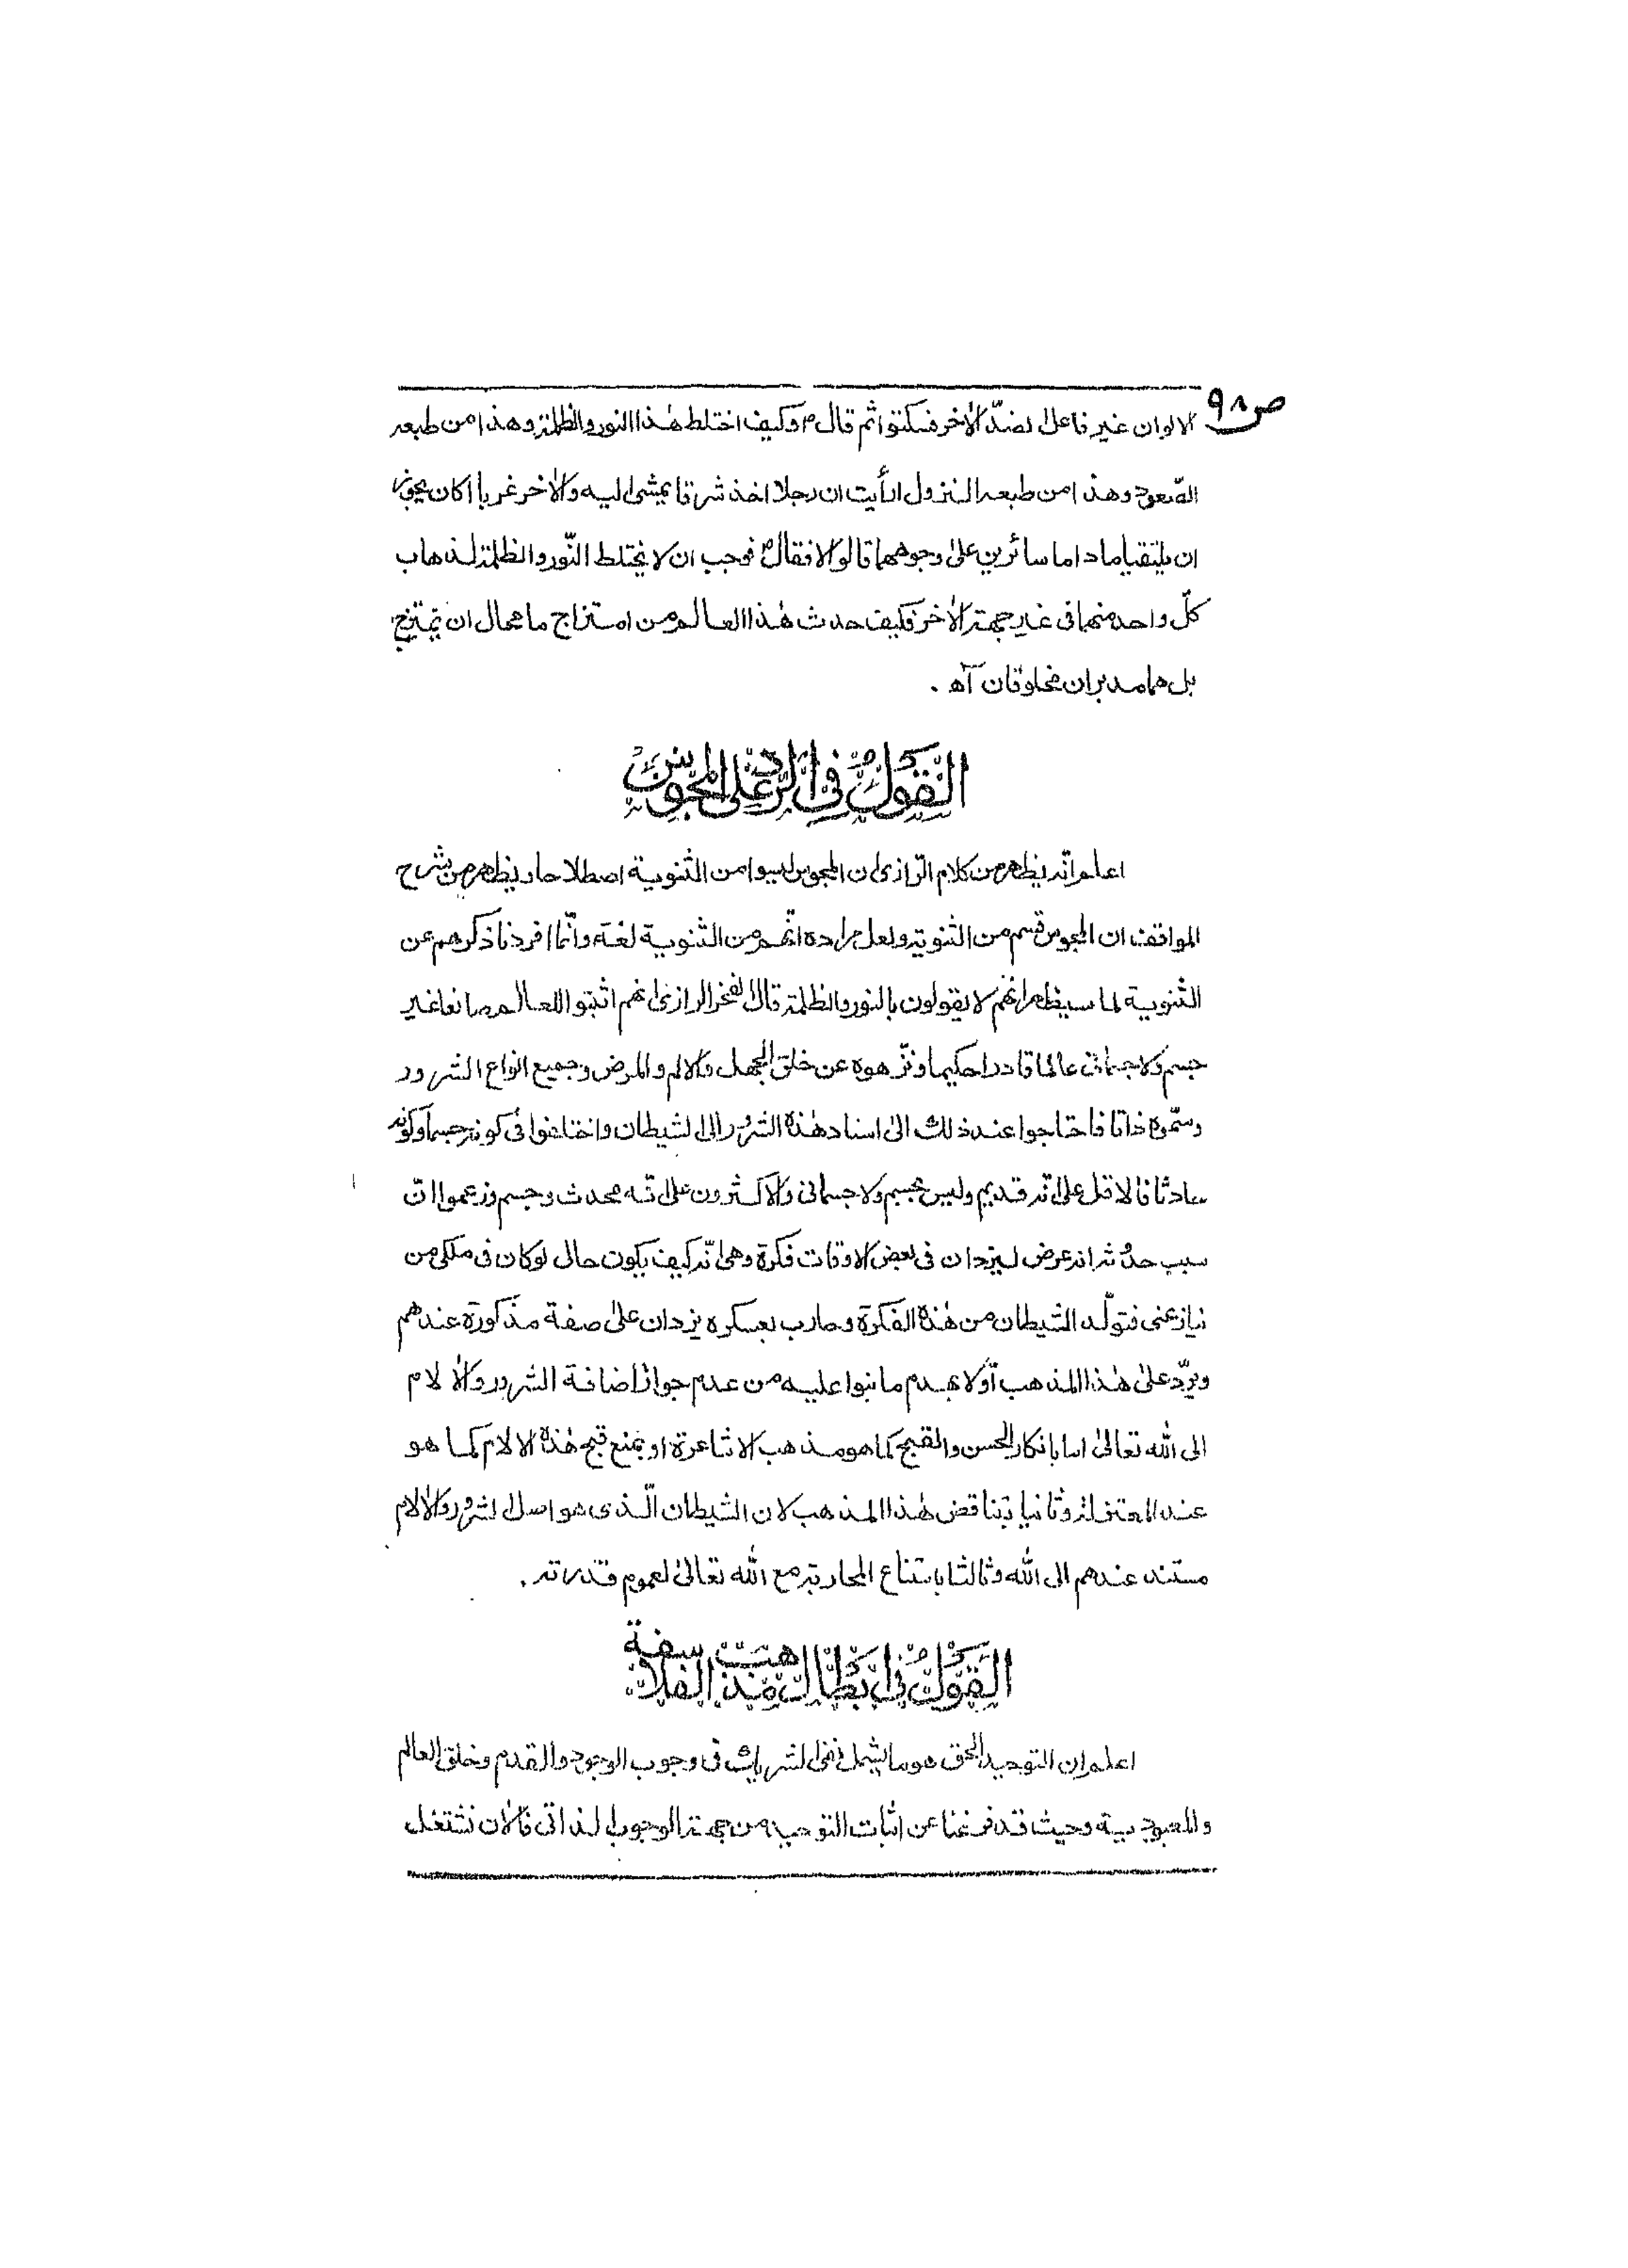 ص ٩٨
الالوان غير فاعل لضدّ الاٰخر فسكتوا ثم قال ع وكيف اختلط هٰذا النور والظلمة وهذا من طبعه
الصّعود وهذا من طبعه النزول ارأيت ان رجلا اخذ شرقا يمشى اليه والاٰخر غربا اكان يجوز
ان يلتقيا ماداما سائرين علىٰ وجوههما قالوا لا فقال ع فوجب ان لا يختلط النّور والظلمة لذهاب
كلّ واحد منهما فى غير جهة الاٰخر فكيف حدث هٰذا العالم من امتزاج ما محال ان يمتزج
بل هما مدبران مخلوقان آه .
القَوْلُ فِى الرَّدِّ عَلَى المَجُوسِ
اعلم انّه يظهر من كلام الرّازى ان المجوس ليسوا من الثنوية اصطلاحا ويظهر من شرح
المواقف ان المجوس قسم من الثنوية ولعل مراده انّهم من الثنوية لغة وانّما افردنا ذكرهم عن
الثنوية لما سيظهر انهم لا يقولون بالنور والظلمة قال الفخر الرازى انهم اثبتوا للعالم صانعا غير
جسم ولا جسمانى عالما قادرا حكيما ونزّهوه عن خلق الجهل والالم والمرض وجميع انواع الشرور
وسمّوه خاتا فاحتاجوا عند ذلك الىٰ اسناد هٰذه الشرور الى الشيطان واختلفوا فى كونه جسما وكونه
حادثا فالاقل على انّه قديم وليس بجسم ولا جسمانى والاكثرون على انّه محدث وجسم وزعموا انّ
سبب حدوثه انه عرض ليزدان فى بعض الاوقات فكرة وهى انّه كيف يكون حالى لوكان فى ملكى من
ينازعنى فتولّد الشيطان من هٰذه الفكرة وحارب بعسكره يزدان علىٰ صفة مذكورة عندهم
ويردّ علىٰ هٰذا المذهب اوّلا بهدم ما بنوا عليه من عدم جواز اضافة الشرور والاٰلام
الى الله تعالىٰ اما بانكار الحسن والقبح كما هو مذهب الاشاعرة او بمنع قبح هٰذه الالام كما هو
عند المعتزلة وثانيا بتناقض هٰذا المذهب لان الشيطان الّذى هو اصل الشرور والاٰلام
مستند عندهم الى الله وثالثا بامتناع المحاربة مع الله تعالىٰ لعموم قدرته .
القَوْلُ فِى اِبْطَالِ مَذْهَبِ الفَلَاسِفَةِ
اعلم ان التوحيد الحق هو ما يشمل نفى الشريك فى وجوب الوجود والقدم وخلق العالم
والمعبودية وحيث قد فرغنا عن اثبات التوحيد من جهة الوجوب الذاتى فالاٰن نشتغل